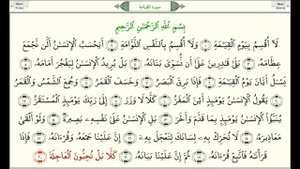 سورة القيامة
بِسْمِ اللَّهِ الرَّحْمَٰنِ الرَّحِيمِ
لَا أُقْسِمُ بِيَوْمِ الْقِيَامَةِ ۝ وَلَا أُقْسِمُ بِالنَّفْسِ اللَّوَّامَةِ ۝ أَيَحْسَبُ الْإِنسَانُ أَلَّن نَّجْمَعَ
عِظَامَهُ ۝ بَلَىٰ قَادِرِينَ عَلَىٰ أَن نُّسَوِّيَ بَنَانَهُ ۝ بَلْ يُرِيدُ الْإِنسَانُ لِيَفْجُرَ أَمَامَهُ ۝
يَسْأَلُ أَيَّانَ يَوْمُ الْقِيَامَةِ ۝ فَإِذَا بَرِقَ الْبَصَرُ ۝ وَخَسَفَ الْقَمَرُ ۝ وَجُمِعَ الشَّمْسُ وَالْقَمَرُ ۝
يَقُولُ الْإِنسَانُ يَوْمَئِذٍ أَيْنَ الْمَفَرُّ ۝ كَلَّا لَا وَزَرَ ۝ إِلَىٰ رَبِّكَ يَوْمَئِذٍ الْمُسْتَقَرُّ ۝
يُنَبَّأُ الْإِنسَانُ يَوْمَئِذٍ بِمَا قَدَّمَ وَأَخَّرَ ۝ بَلِ الْإِنسَانُ عَلَىٰ نَفْسِهِ بَصِيرَةٌ ۝ وَلَوْ أَلْقَىٰ
مَعَاذِيرَهُ ۝ لَا تُحَرِّكْ بِهِ لِسَانَكَ لِتَعْجَلَ بِهِ ۝ إِنَّ عَلَيْنَا جَمْعَهُ وَقُرْآنَهُ ۝ فَإِذَا
قَرَأْنَاهُ فَاتَّبِعْ قُرْآنَهُ ۝ ثُمَّ إِنَّ عَلَيْنَا بَيَانَهُ ۝ كَلَّا بَلْ تُحِبُّونَ الْعَاجِلَةَ ۝